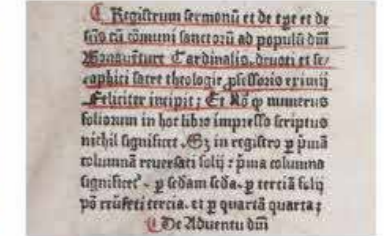 Registrum sermonū et de tꝑe et de
sc̄is cū cōmuni sanctoꝝ ad populū dn̄i
Bonauēture Cardinalis, deuoti et se-
raphici sacre theologie ꝓfessoris eximij
Feliciter incipit; Et Nō ꝙ numerus
foliorum in hoc libro impresso scriptus
nichil significet. Sꝫ in registro ꝑ p̄mā
columnā reuersati folij : p̄ma columna
significet᷑. ꝑ scdam scda. ꝑ terciā folij
pō reūsati tercia. et ꝑ quartā quarta;
De Aduentu dn̄i